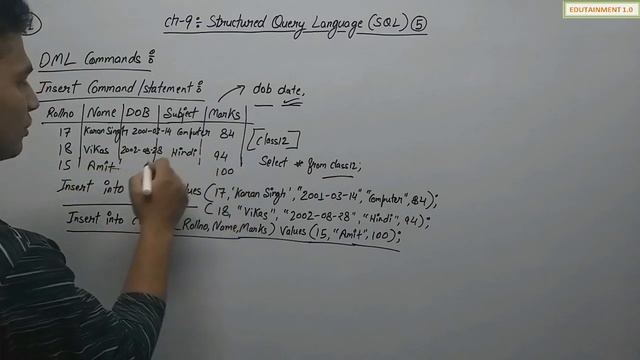 EDUTAINMENT 1.0
Ch-9: Structured Query Language (SQL) 5
DML Commands :
Insert Command/statement :
dob date,
Rollno Name DOB Subject Marks
17 Karan Singh 2001-03-14 Computer 84
[Class12]
18 Vikas 2002-08-28 Hindi 94
Select * from class12;
15 Amit 100
Insert into Values (17, 'Karan Singh', "2001-03-14", "Computer", 84);
(18, "Vikas", "2002-08-28", "Hindi", 94);
Insert into Rollno, Name, Marks) Values (15, "Amit", 100);